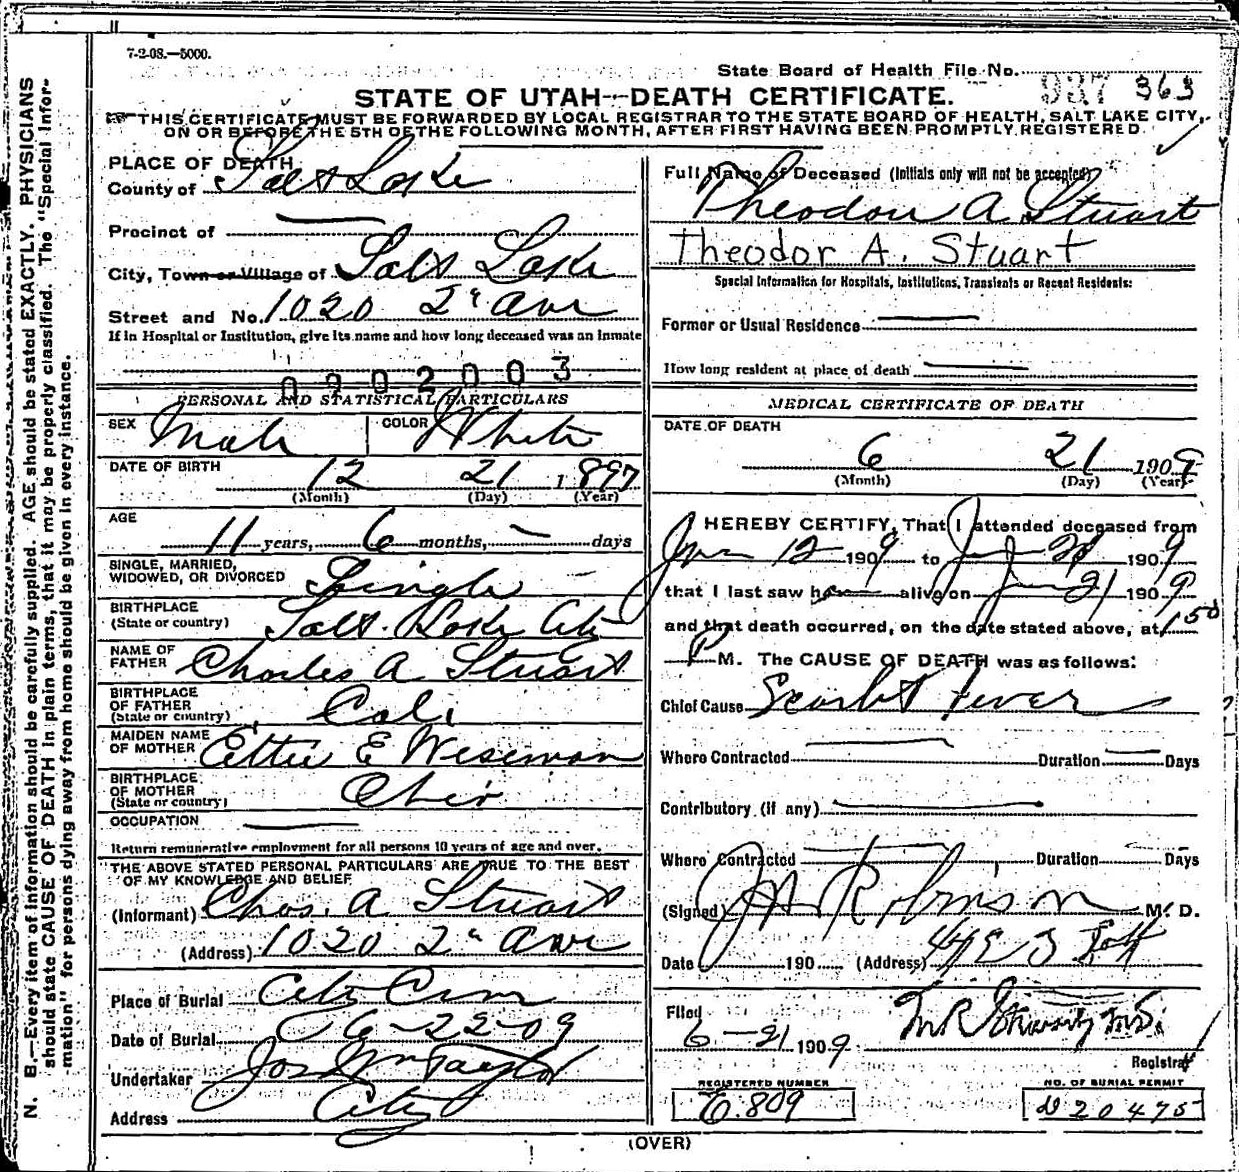 7-2-08.—5000.
State Board of Health File No. 937 363
STATE OF UTAH—DEATH CERTIFICATE.
THIS CERTIFICATE MUST BE FORWARDED BY LOCAL REGISTRAR TO THE STATE BOARD OF HEALTH, SALT LAKE CITY,
ON OR BEFORE THE 5TH OF THE FOLLOWING MONTH, AFTER FIRST HAVING BEEN PROMPTLY REGISTERED.
N. B.—Every item of information should be carefully supplied. AGE should be stated EXACTLY. PHYSICIANS
should state CAUSE OF DEATH in plain terms, that it may be properly classified. The "Special Infor-
mation" for persons dying away from home should be given in every instance.
PLACE OF DEATH
County of Salt Lake
Precinct of
City, Town or Village of Salt Lake
Street and No. 1020 2" Ave
If in Hospital or Institution, give its name and how long deceased was an inmate
0902003
PERSONAL AND STATISTICAL PARTICULARS
SEX Male COLOR White
DATE OF BIRTH 12 21 1897
(Month) (Day) (Year)
AGE
11 years, 6 months, — days
SINGLE, MARRIED,
WIDOWED, OR DIVORCED Single
BIRTHPLACE
(State or country) Salt Lake City
NAME OF
FATHER Charles A Stuart
BIRTHPLACE
OF FATHER
(State or country) Cali
MAIDEN NAME
OF MOTHER Ettie E Weseman
BIRTHPLACE
OF MOTHER
(State or country) Ohio
OCCUPATION
Return remunerative employment for all persons 10 years of age and over.
THE ABOVE STATED PERSONAL PARTICULARS ARE TRUE TO THE BEST
OF MY KNOWLEDGE AND BELIEF
(Informant) Chas. A Stuart
(Address) 1020 2" Ave
Place of Burial City Cem
Date of Burial 6-22-09
Undertaker Jos Wm Taylor
Address City
Full Name of Deceased (Initials only will not be accepted)
Theodore A Stuart
Theodor A. Stuart
Special Information for Hospitals, Institutions, Transients or Recent Residents:
Former or Usual Residence
How long resident at place of death
MEDICAL CERTIFICATE OF DEATH
DATE OF DEATH
6 21 1909
(Month) (Day) (Year)
I HEREBY CERTIFY, That I attended deceased from
Jun 12 1909 to Jun 21 1909
that I last saw him alive on Jun 21 1909
and that death occurred, on the date stated above, at 1.50
P M. The CAUSE OF DEATH was as follows:
Chief Cause Scarlet Fever
Where Contracted Duration Days
Contributory (if any)
Where Contracted Duration Days
(Signed) J H Robinson M. D.
Date 190 (Address)
Filed
6-21 1909
Registrar
REGISTERED NUMBER
E.809
NO. OF BURIAL PERMIT
20475
(OVER)